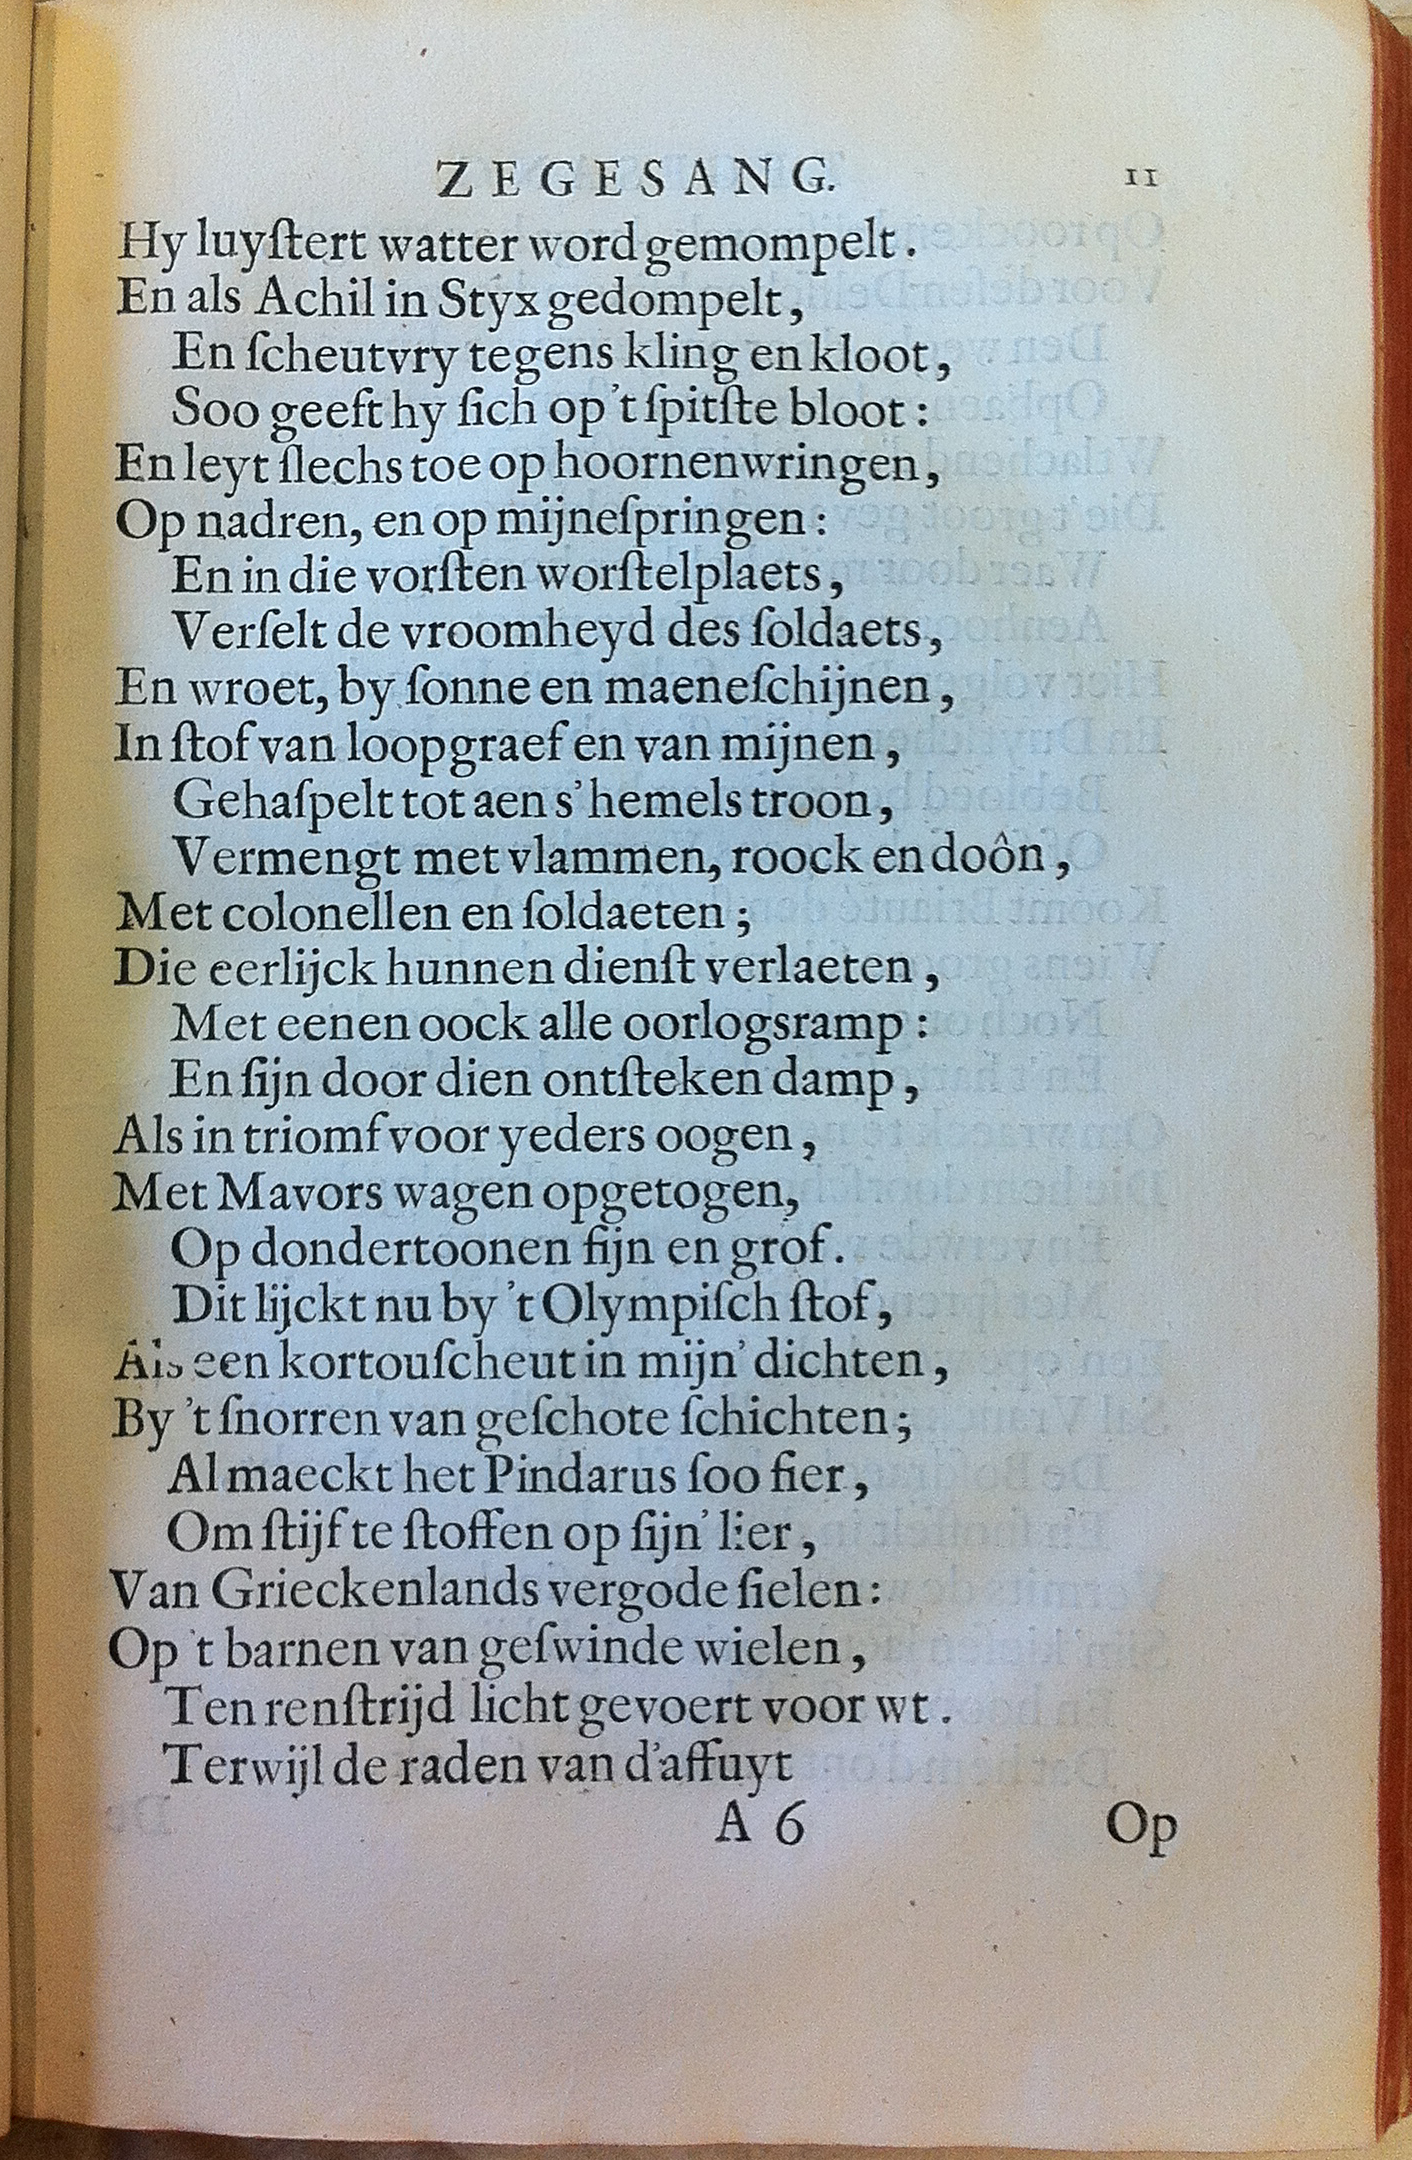 ZEGESANG. 11
Hy luyſtert watter word gemompelt.
En als Achil in Styx gedompelt,
En ſcheutvry tegens kling en kloot,
Soo geeft hy ſich op 't ſpitſte bloot:
En leyt ſlechs toe op hoornenwringen,
Op nadren, en op mijneſpringen:
En in die vorſten worſtelplaets,
Verſelt de vroomheyd des ſoldaets,
En wroet, by ſonne en maeneſchijnen,
In ſtof van loopgraef en van mijnen,
Gehaſpelt tot aen s'hemels troon,
Vermengt met vlammen, roock en doôn,
Met colonellen en ſoldaeten;
Die eerlijck hunnen dienſt verlaeten,
Met eenen oock alle oorlogsramp:
En ſijn door dien ontſteken damp,
Als in triomf voor yeders oogen,
Met Mavors wagen opgetogen,
Op dondertoonen fijn en grof.
Dit lijckt nu by 't Olympiſch ſtof,
Als een kortouſcheut in mijn' dichten,
By 't ſnorren van geſchote ſchichten;
Al maeckt het Pindarus ſoo fier,
Om ſtijf te ſtoffen op ſijn' lier,
Van Grieckenlands vergode ſielen:
Op 't barnen van geſwinde wielen,
Ten renſtrijd licht gevoert voor wt.
Terwijl de raden van d'affuyt
A 6 Op